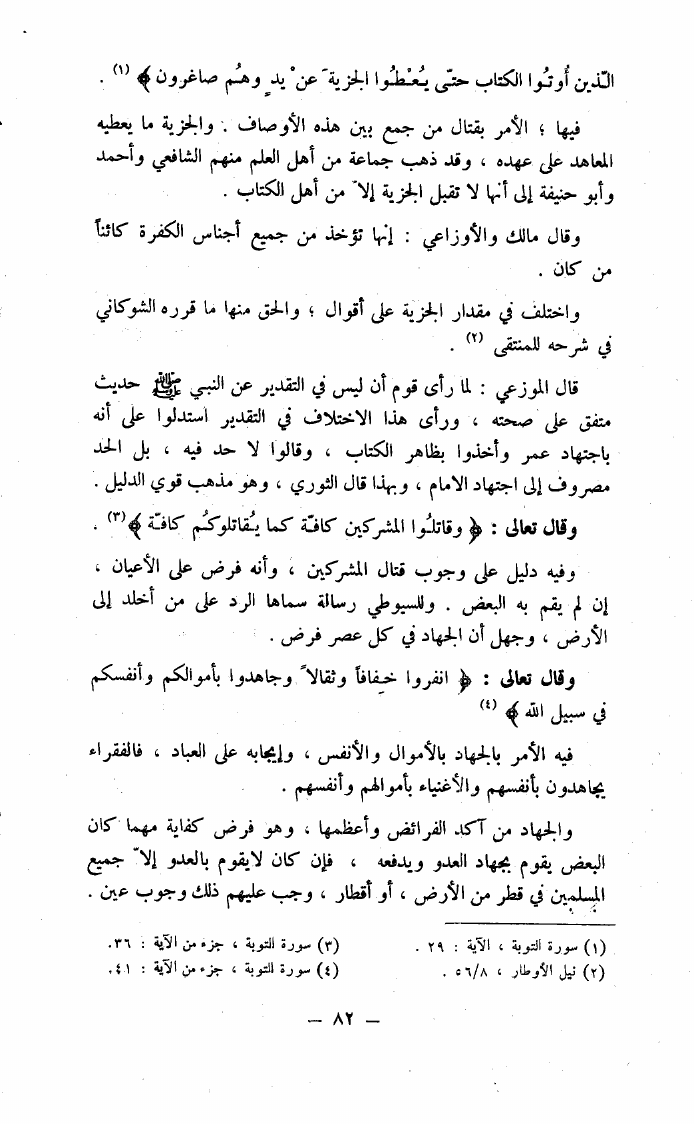 الّذين أُوتُوا الكتاب حتّى يُعْطُوا الجزيةَ عنْ يدٍ وهُم صاغرون ﴾ (١) .
فيها ؛ الأمر بقتال من جمع بين هذه الأوصاف . والجزية ما يعطيه
المعاهد على عهده ، وقد ذهب جماعة من أهل العلم منهم الشافعي وأحمد
وأبو حنيفة إلى أنها لا تقبل الجزية إلاّ من أهل الكتاب .
وقال مالك والأوزاعي : إنها تؤخذ من جميع أجناس الكفرة كائناً
من كان .
واختلف في مقدار الجزية على أقوال ؛ والحق منها ما قرره الشوكاني
في شرحه للمنتقى (٢) .
قال الموزعي : لما رأى قوم أن ليس في التقدير عن النبي ﷺ حديث
متفق على صحته ، ورأى هذا الاختلاف في التقدير استدلوا على أنه
باجتهاد عمر وأخذوا بظاهر الكتاب ، وقالوا لا حد فيه ، بل الحد
مصروف إلى اجتهاد الامام ، وبهذا قال الثوري ، وهو مذهب قوي الدليل .
وقال تعالى : ﴿ وقاتلُوا المشركين كافّة كما يُقاتلوكُم كافّة ﴾ (٣) .
وفيه دليل على وجوب قتال المشركين ، وأنه فرض على الأعيان ،
إن لم يقم به البعض . وللسيوطي رسالة سماها الرد على من أخلد إلى
الأرض ، وجهل أن الجهاد في كل عصر فرض .
وقال تعالى : ﴿ انفروا خِفافاً وثقالاً وجاهدوا بأموالكم وأنفسكم
في سبيل الله ﴾ (٤)
فيه الأمر بالجهاد بالأموال والأنفس ، وإيجابه على العباد ، فالفقراء
يجاهدون بأنفسهم والأغنياء بأموالهم وأنفسهم .
والجهاد من آكد الفرائض وأعظمها ، وهو فرض كفاية مهما كان
البعض يقوم بجهاد العدو ويدفعه ، فإن كان لايقوم بالعدو إلاّ جميع
المسلمين في قطر من الأرض ، أو أقطار ، وجب عليهم ذلك وجوب عين .
(١) سورة التوبة ، الآية : ٢٩ .
(٢) نيل الأوطار ، ٥٦/٨ .
(٣) سورة التوبة ، جزء من الآية : ٣٦.
(٤) سورة التوبة ، جزء من الآية : ٤١.
– ٨٢ –